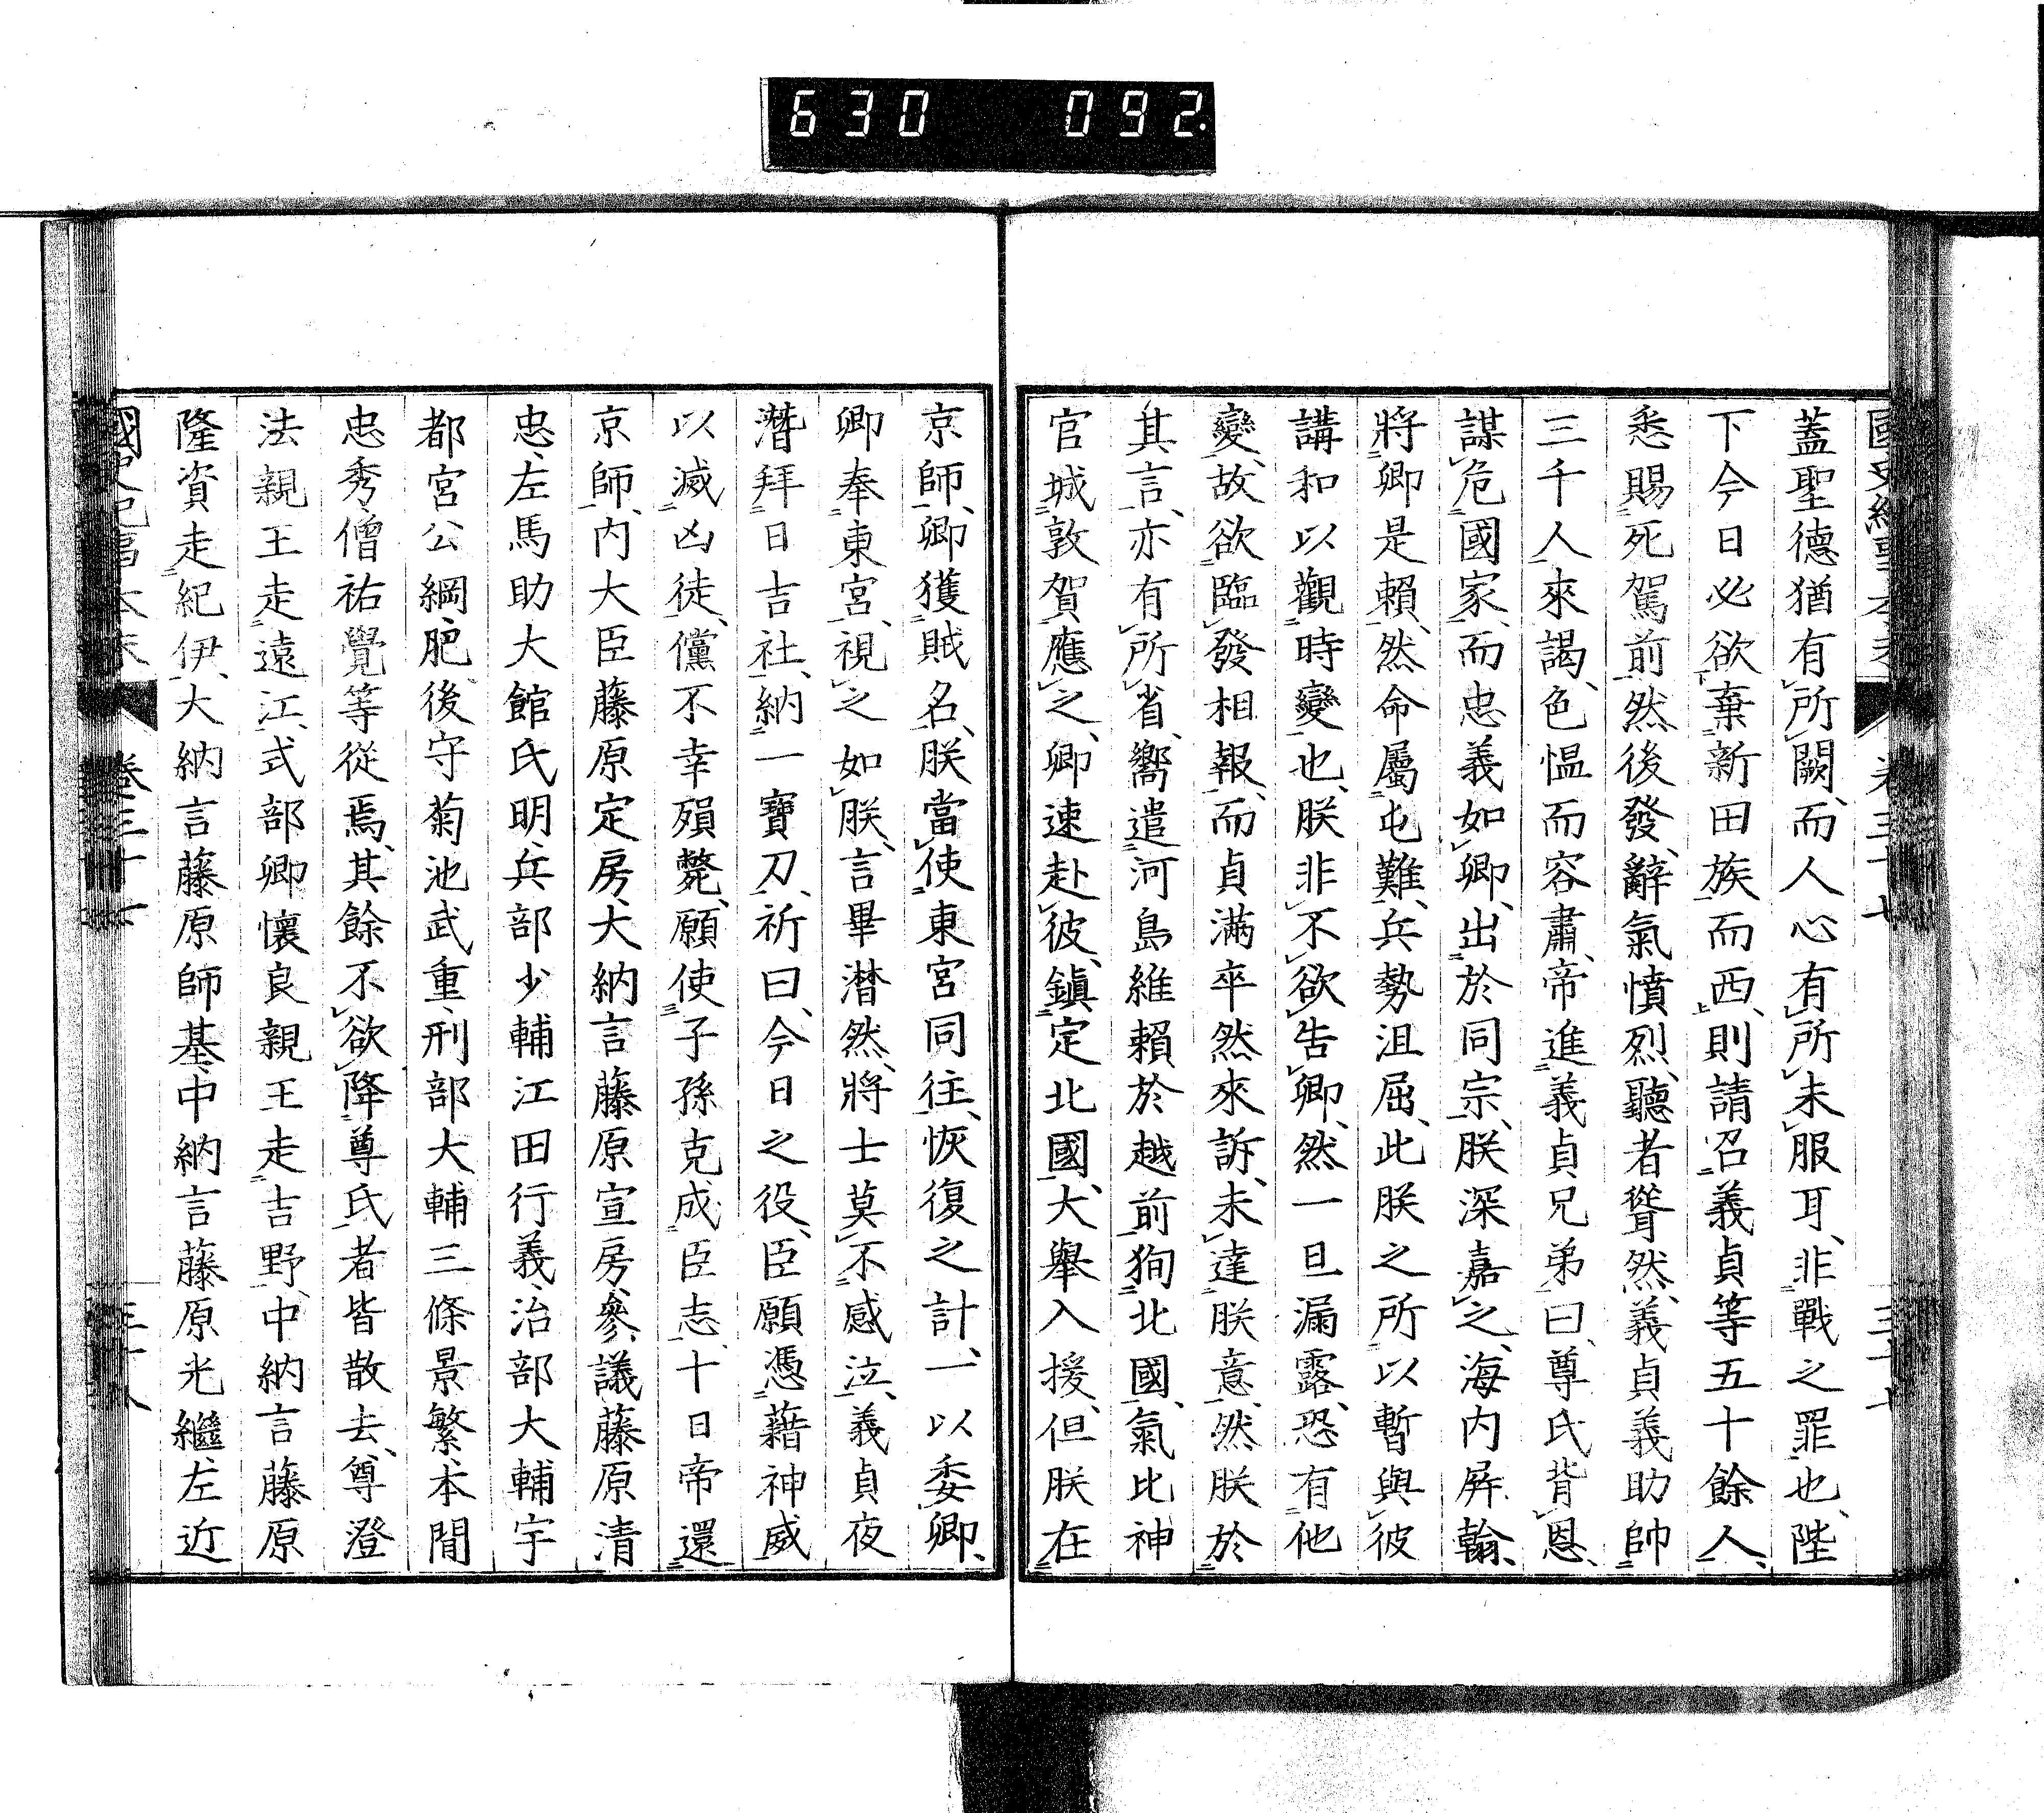 630 092.
蓋聖德猶有所闕、而人心有所未服耳、非戰之罪也、陛
下今日必欲棄新田族而西、則請召義貞等五十餘人、
悉賜死駕前、然後發、辭氣憤烈、聽者聳然、義貞義助帥
三千人來謁、色慍而容肅、帝進義貞兄弟曰、尊氏背恩、
謀危國家、而忠義如卿、出於同宗、朕深嘉之、海内屏翰、
將卿是賴、然命屬屯難、兵勢沮屈、此朕之所以暫與彼
講和以觀時變也、朕非不欲告卿、然一旦漏露、恐有他
變、故欲臨發相報、而貞滿卒然來訴、未達朕意、然朕於
其言、亦有所省、嚮遣河島維賴於越前狥北國、氣比神
官城敦賀應之、卿速赴彼、鎭定北國、大舉入援、但朕在
京師、卿獲賊名、朕當使東宮同往、恢復之計、一以委卿、
卿奉東宮、視之如朕、言畢潸然、將士莫不感泣、義貞夜
潛拜日吉社、納一寶刀、祈曰、今日之役、臣願憑藉神威
以滅凶徒、儻不幸殞斃、願使子孫克成臣志、十日帝還
京師、内大臣藤原定房、大納言藤原宣房、參議藤原清
忠、左馬助大館氏明、兵部少輔江田行義、治部大輔宇
都宮公綱、肥後守菊池武重、刑部大輔三條景繁、本間
忠秀、僧祐覺等從焉、其餘不欲降尊氏者皆散去、尊澄
法親王走遠江、式部卿懷良親王走吉野、中納言藤原
隆資走紀伊、大納言藤原師基、中納言藤原光繼、左近
國史紀事本末 卷三十七 三十八